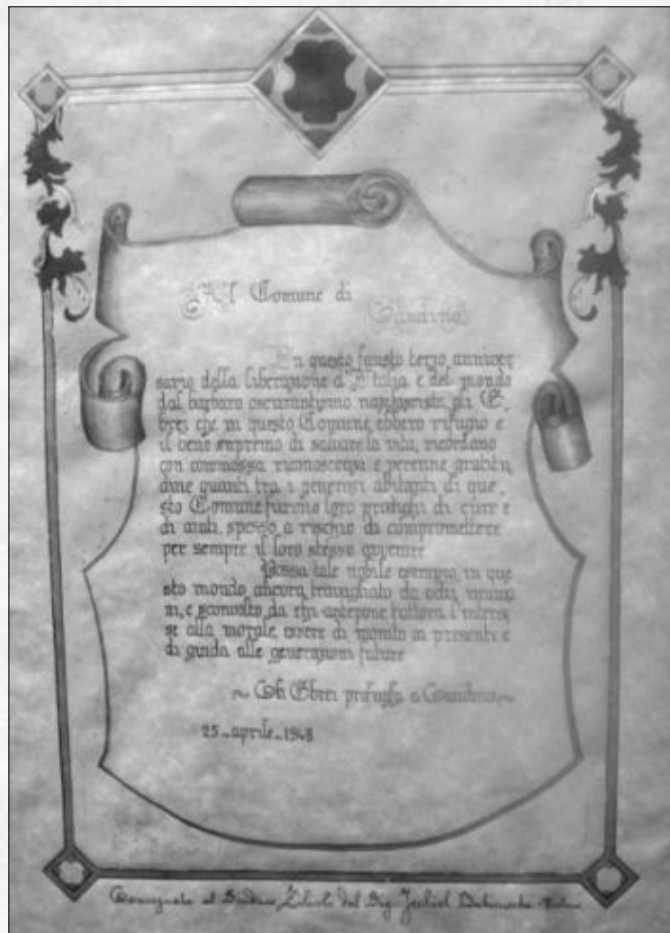 Al Comune di
Gandino
In questo fausto terzo anniver
sario della liberazione d'Italia e del mondo
dal barbaro oscurantismo nazifascista, gli E.
brei che in questo Comune ebbero rifugio e
il bene supremo di salvare la vita, ricordano
con commossa riconoscenza e perenne gratitu,
dine quanti tra i generosi abitanti di que,
sto Comune furono loro prodighi di cure e
di aiuti, spesso a rischio di compromettere
per sempre il loro stesso avvenire
Possa tale nobile esempio, in que
sto mondo ancora travagliato da odii
e sconvolto da chi antepone tuttora l'interes
se alla morale, essere di monito ai presenti e
di guida alle generazioni future
~ Gli Ebrei profughi a Gandino ~
25 - aprile - 1948
Consegnata al Sindaco dal Sig.